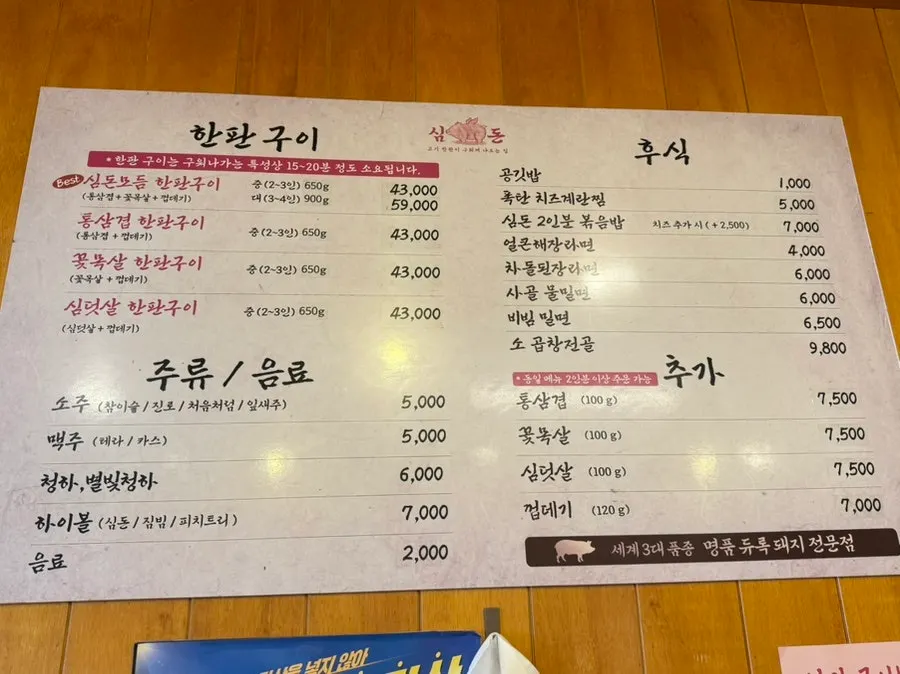 심 돈
고기 한판이 구워져 나오는 집
한판 구이
* 한판 구이는 구워나가는 특성상 15~20분 정도 소요됩니다.
Best 심돈모듬 한판구이 중(2~3인) 650g 43,000
(통삼겹+꽃목살+껍데기) 대(3~4인) 900g 59,000
통삼겹 한판구이 중(2~3인) 650g 43,000
(통삼겹+껍데기)
꽃목살 한판구이 중(2~3인) 650g 43,000
(꽃목살+껍데기)
심덧살 한판구이 중(2~3인) 650g 43,000
(심덧살+껍데기)
주류 / 음료
소주 (참이슬 / 진로 / 처음처럼 / 잎새주) 5,000
맥주 (테라 / 카스) 5,000
청하,별빛청하 6,000
하이볼 (심돈 / 짐빔 / 피치트리) 7,000
음료 2,000
후식
공깃밥 1,000
폭탄 치즈계란찜 5,000
심돈 2인분 볶음밥 치즈 추가 시 (+2,500) 7,000
얼큰해장라면 4,000
차돌된장라면 6,000
사골 물밀면 6,000
비빔 밀면 6,500
소 곱창전골 9,800
* 동일 메뉴 2인분 이상 주문 가능 추가
통삼겹 (100 g) 7,500
꽃목살 (100 g) 7,500
심덧살 (100 g) 7,500
껍데기 (120 g) 7,000
세계 3대 품종 명품 듀록 돼지 전문점
넣지 않아